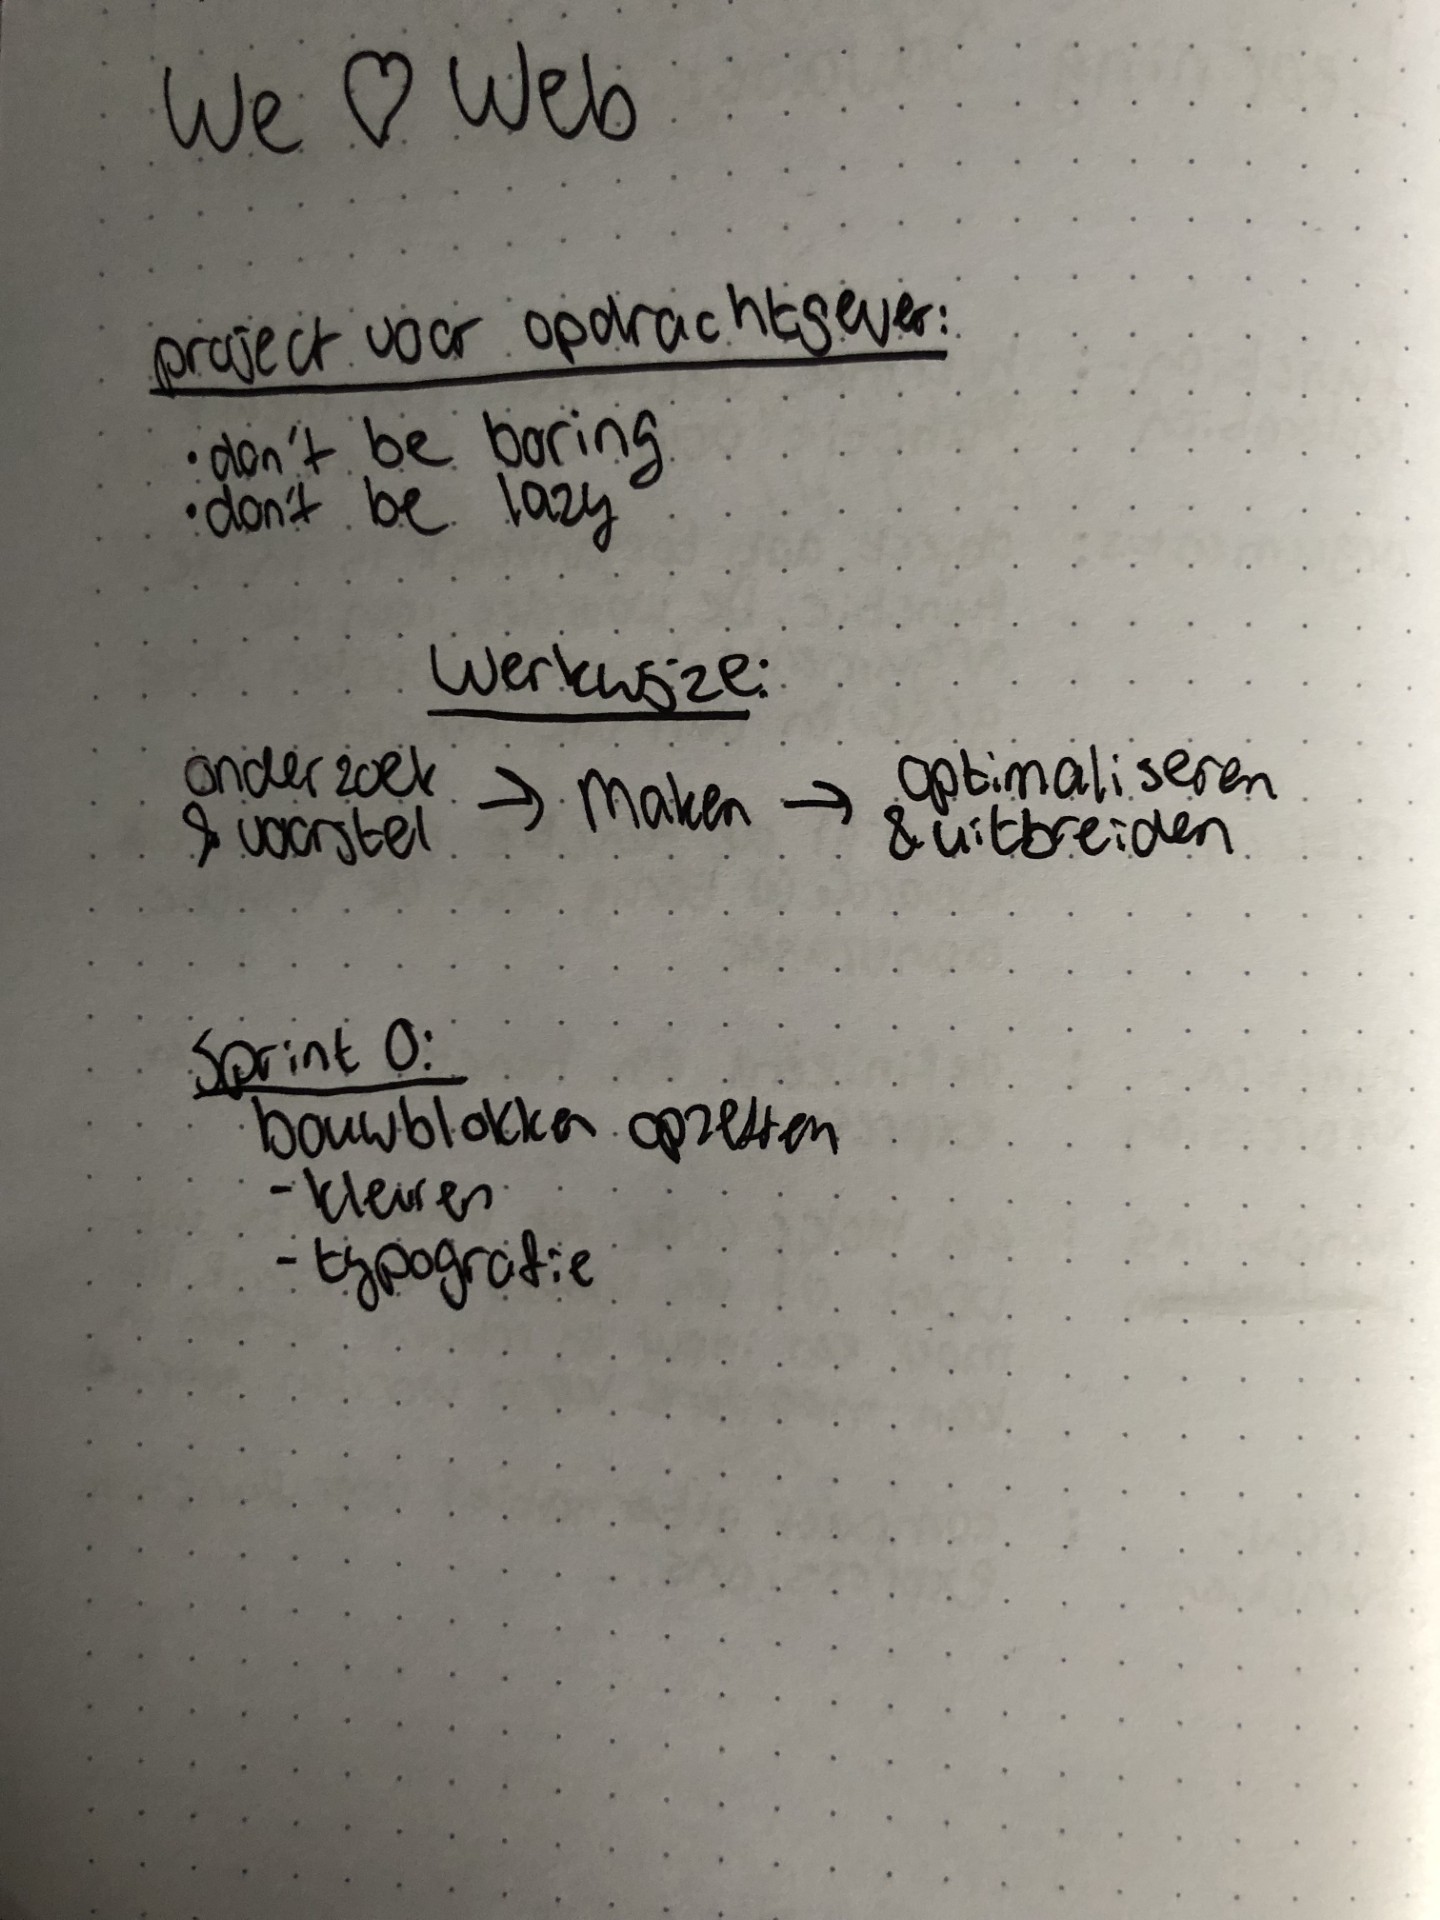 We ♡ Web
project voor opdrachtgever:
• don't be boring
• don't be lazy
Werkwijze:
onderzoek & voorstel → Maken → optimaliseren & uitbreiden
Sprint 0:
bouwblokken opzetten
- kleuren
- typografie